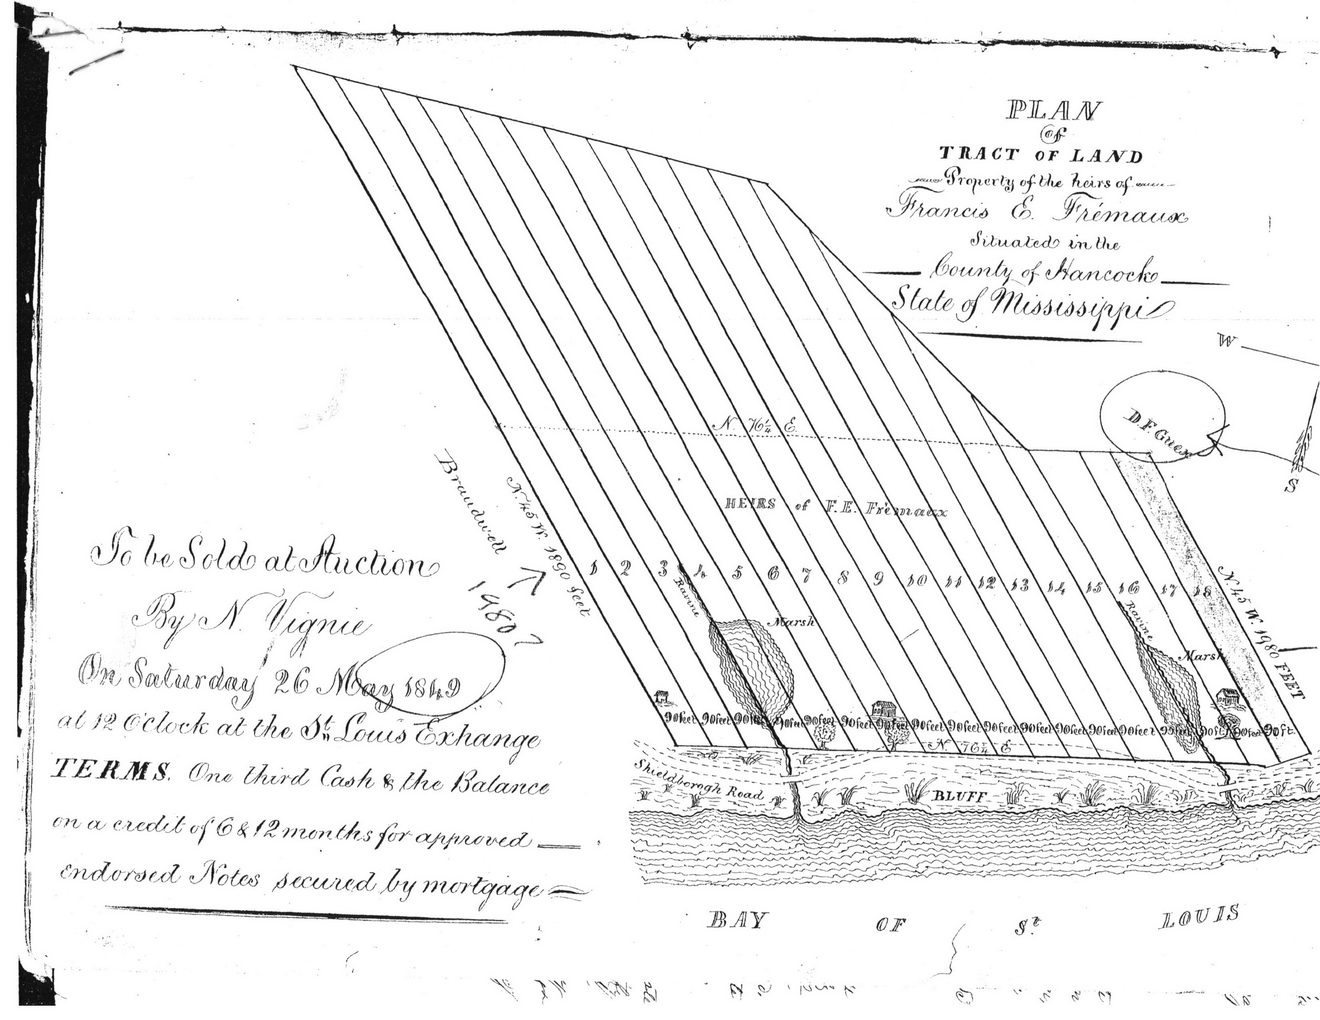 PLAN
of
TRACT OF LAND
Property of the heirs of
Francis E. Frémaux
Situated in the
County of Hancock
State of Mississippi
W
S
D.F. Guex
N 76¼ E.
HEIRS of F.E. Frèmaux
Braudwell
N 45 W. 1890 feet
1980?
1 2 3 4 5 6 7 8 9 10 11 12 13 14 15 16 17 18
N 45 W. 1980 FEET
Ravine
Marsh
Ravine
Marsh
90 feet 90 feet 90 feet 90 feet 90 feet 90 feet 90 feet 90 feet 90 feet 90 feet 90 feet 90 feet 90 feet 90 feet 95 feet 90 ft 90 feet 90 ft.
N 76¼ E
Shieldborogh Road
BLUFF
BAY OF St. LOUIS
To be Sold at Auction
By N. Vignie
On Saturday 26 May 1849
at 12 O'clock at the St. Louis Exhange
TERMS. One third Cash & the Balance
on a credit of 6 & 12 months for approved
endorsed Notes secured by mortgage